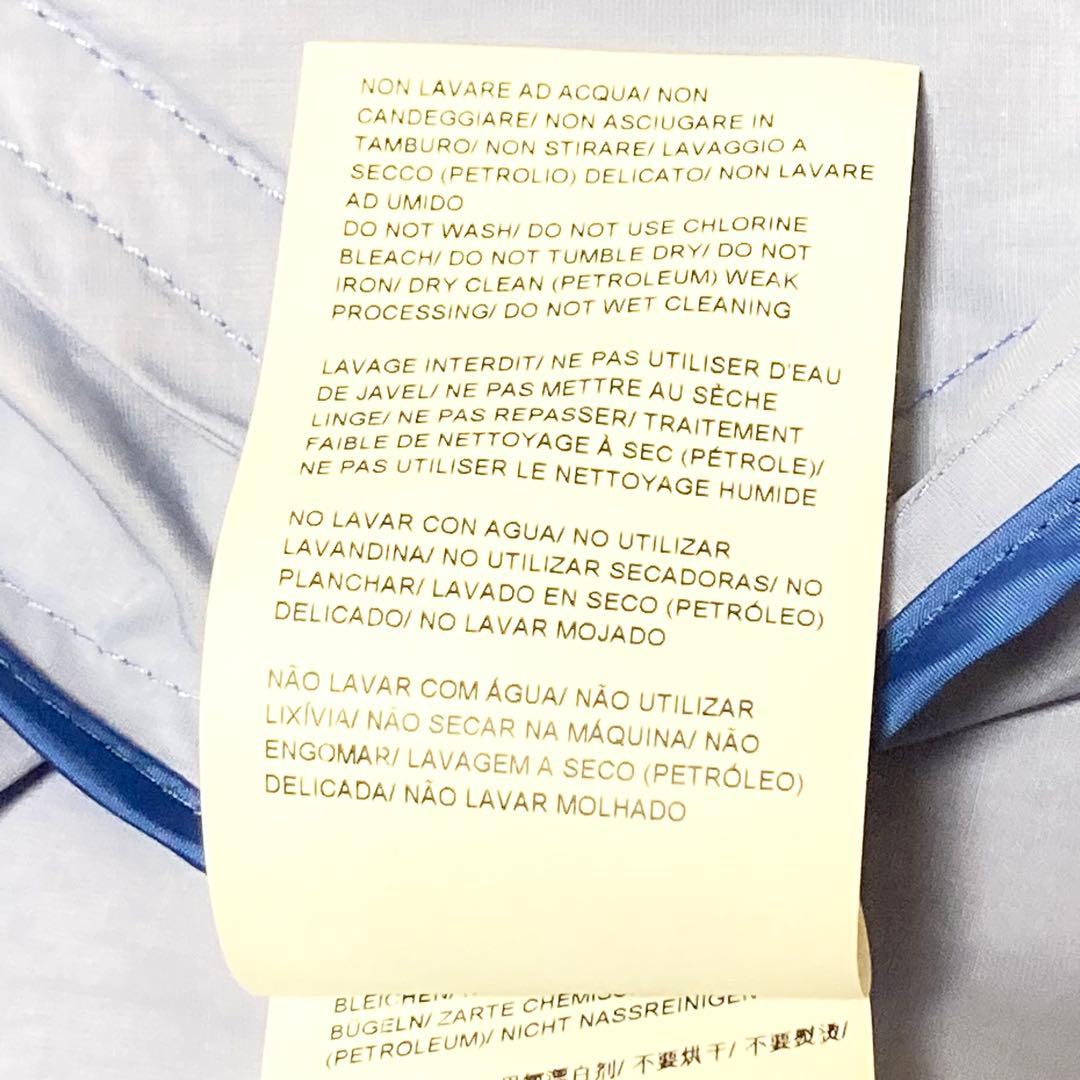 NON LAVARE AD ACQUA/ NON
CANDEGGIARE/ NON ASCIUGARE IN
TAMBURO/ NON STIRARE/ LAVAGGIO A
SECCO (PETROLIO) DELICATO/ NON LAVARE
AD UMIDO
DO NOT WASH/ DO NOT USE CHLORINE
BLEACH/ DO NOT TUMBLE DRY/ DO NOT
IRON/ DRY CLEAN (PETROLEUM) WEAK
PROCESSING/ DO NOT WET CLEANING
LAVAGE INTERDIT/ NE PAS UTILISER D'EAU
DE JAVEL/ NE PAS METTRE AU SÈCHE
LINGE/ NE PAS REPASSER/ TRAITEMENT
FAIBLE DE NETTOYAGE À SEC (PÉTROLE)/
NE PAS UTILISER LE NETTOYAGE HUMIDE
NO LAVAR CON AGUA/ NO UTILIZAR
LAVANDINA/ NO UTILIZAR SECADORAS/ NO
PLANCHAR/ LAVADO EN SECO (PETRÓLEO)
DELICADO/ NO LAVAR MOJADO
NÃO LAVAR COM ÁGUA/ NÃO UTILIZAR
LIXÍVIA/ NÃO SECAR NA MÁQUINA/ NÃO
ENGOMAR/ LAVAGEM A SECO (PETRÓLEO)
DELICADA/ NÃO LAVAR MOLHADO
BLEICHEN/
BÜGELN/ ZARTE
(PETROLEUM)/ NICHT NASSREINIGEN
漂白剂/ 不要烘干/ 不要熨烫/